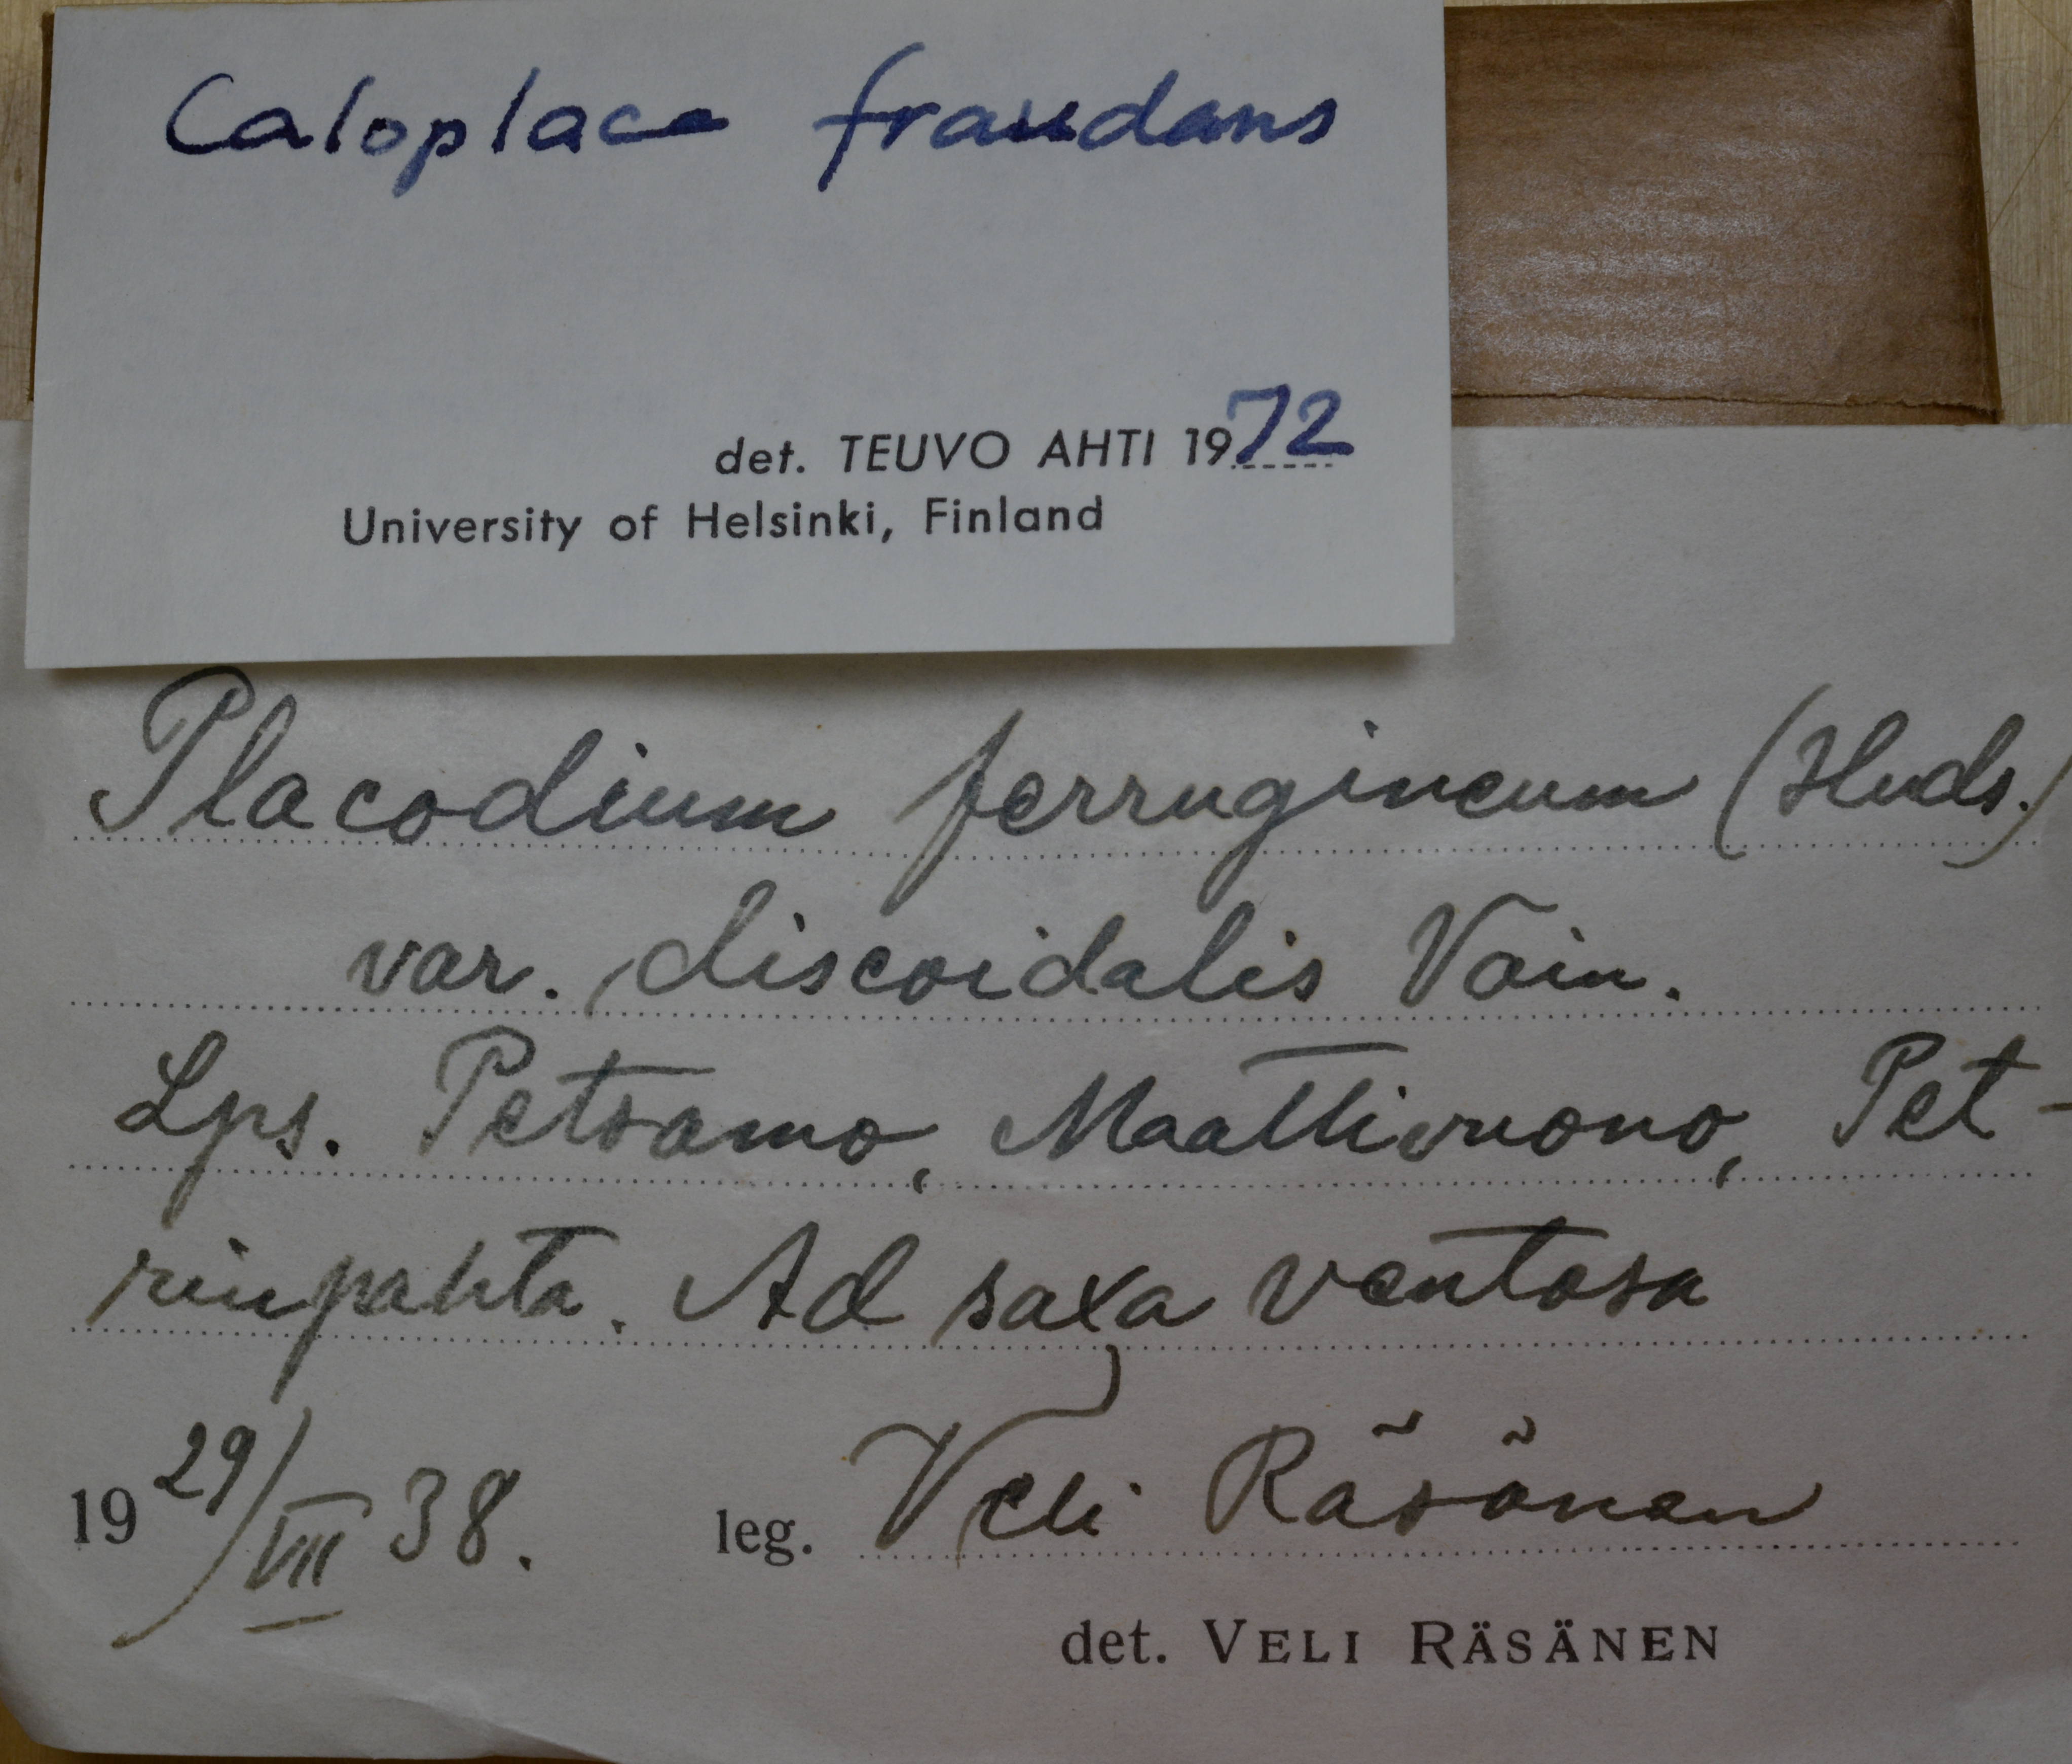 Caloplaca fraudans
det. TEUVO AHTI 1972
University of Helsinki, Finland
Placodium ferrugineum (Huds.)
var. discoidalis Vain.
Lps. Petsamo, Maattivuono, Pet-
rinpahta. Ad saxa ventosa
19 29/VIII 38. leg. Veli Räsänen
det. VELI RÄSÄNEN